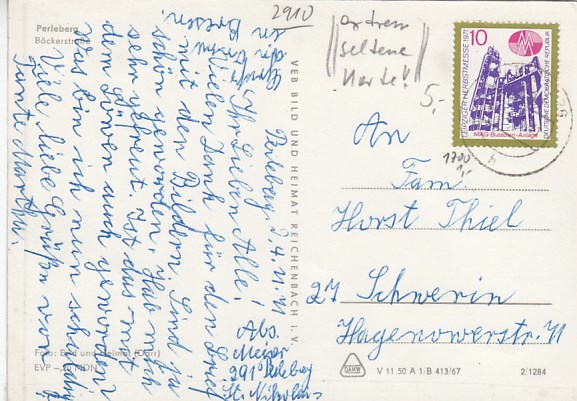 Perleberg
Bäckerstraße
2910
extrem
seltene
Karte!
5,-
1700
1,-
10
LEIPZIGER HERBSTMESSE 1971
MAG-Butadien-Anlage
DEUTSCHE DEMOKRATISCHE REPUBLIK
VEB BILD UND HEIMAT REICHENBACH I. V.
Perleberg, d. 4.11.71
Ihr Lieben Alle!
Vielen Dank für den Brief
mit den Bildern. Sind ja
schön geworden. Hab mich
sehr gefreut. Ist das mit
dem Löwen auch geworden?
Was bin ich nun schuldig
Viele liebe Grüße von
Tante Martha.
Abs.
Meyer
291 Perleberg
St. Nikolai
An
Fam.
Horst Thiel
27 Schwerin
Hagenowerstr. 11
Foto: Bild und Heimat (Darr)
EVP –,20 MDN
V 11 50 A 1/B 413/67
2/1284